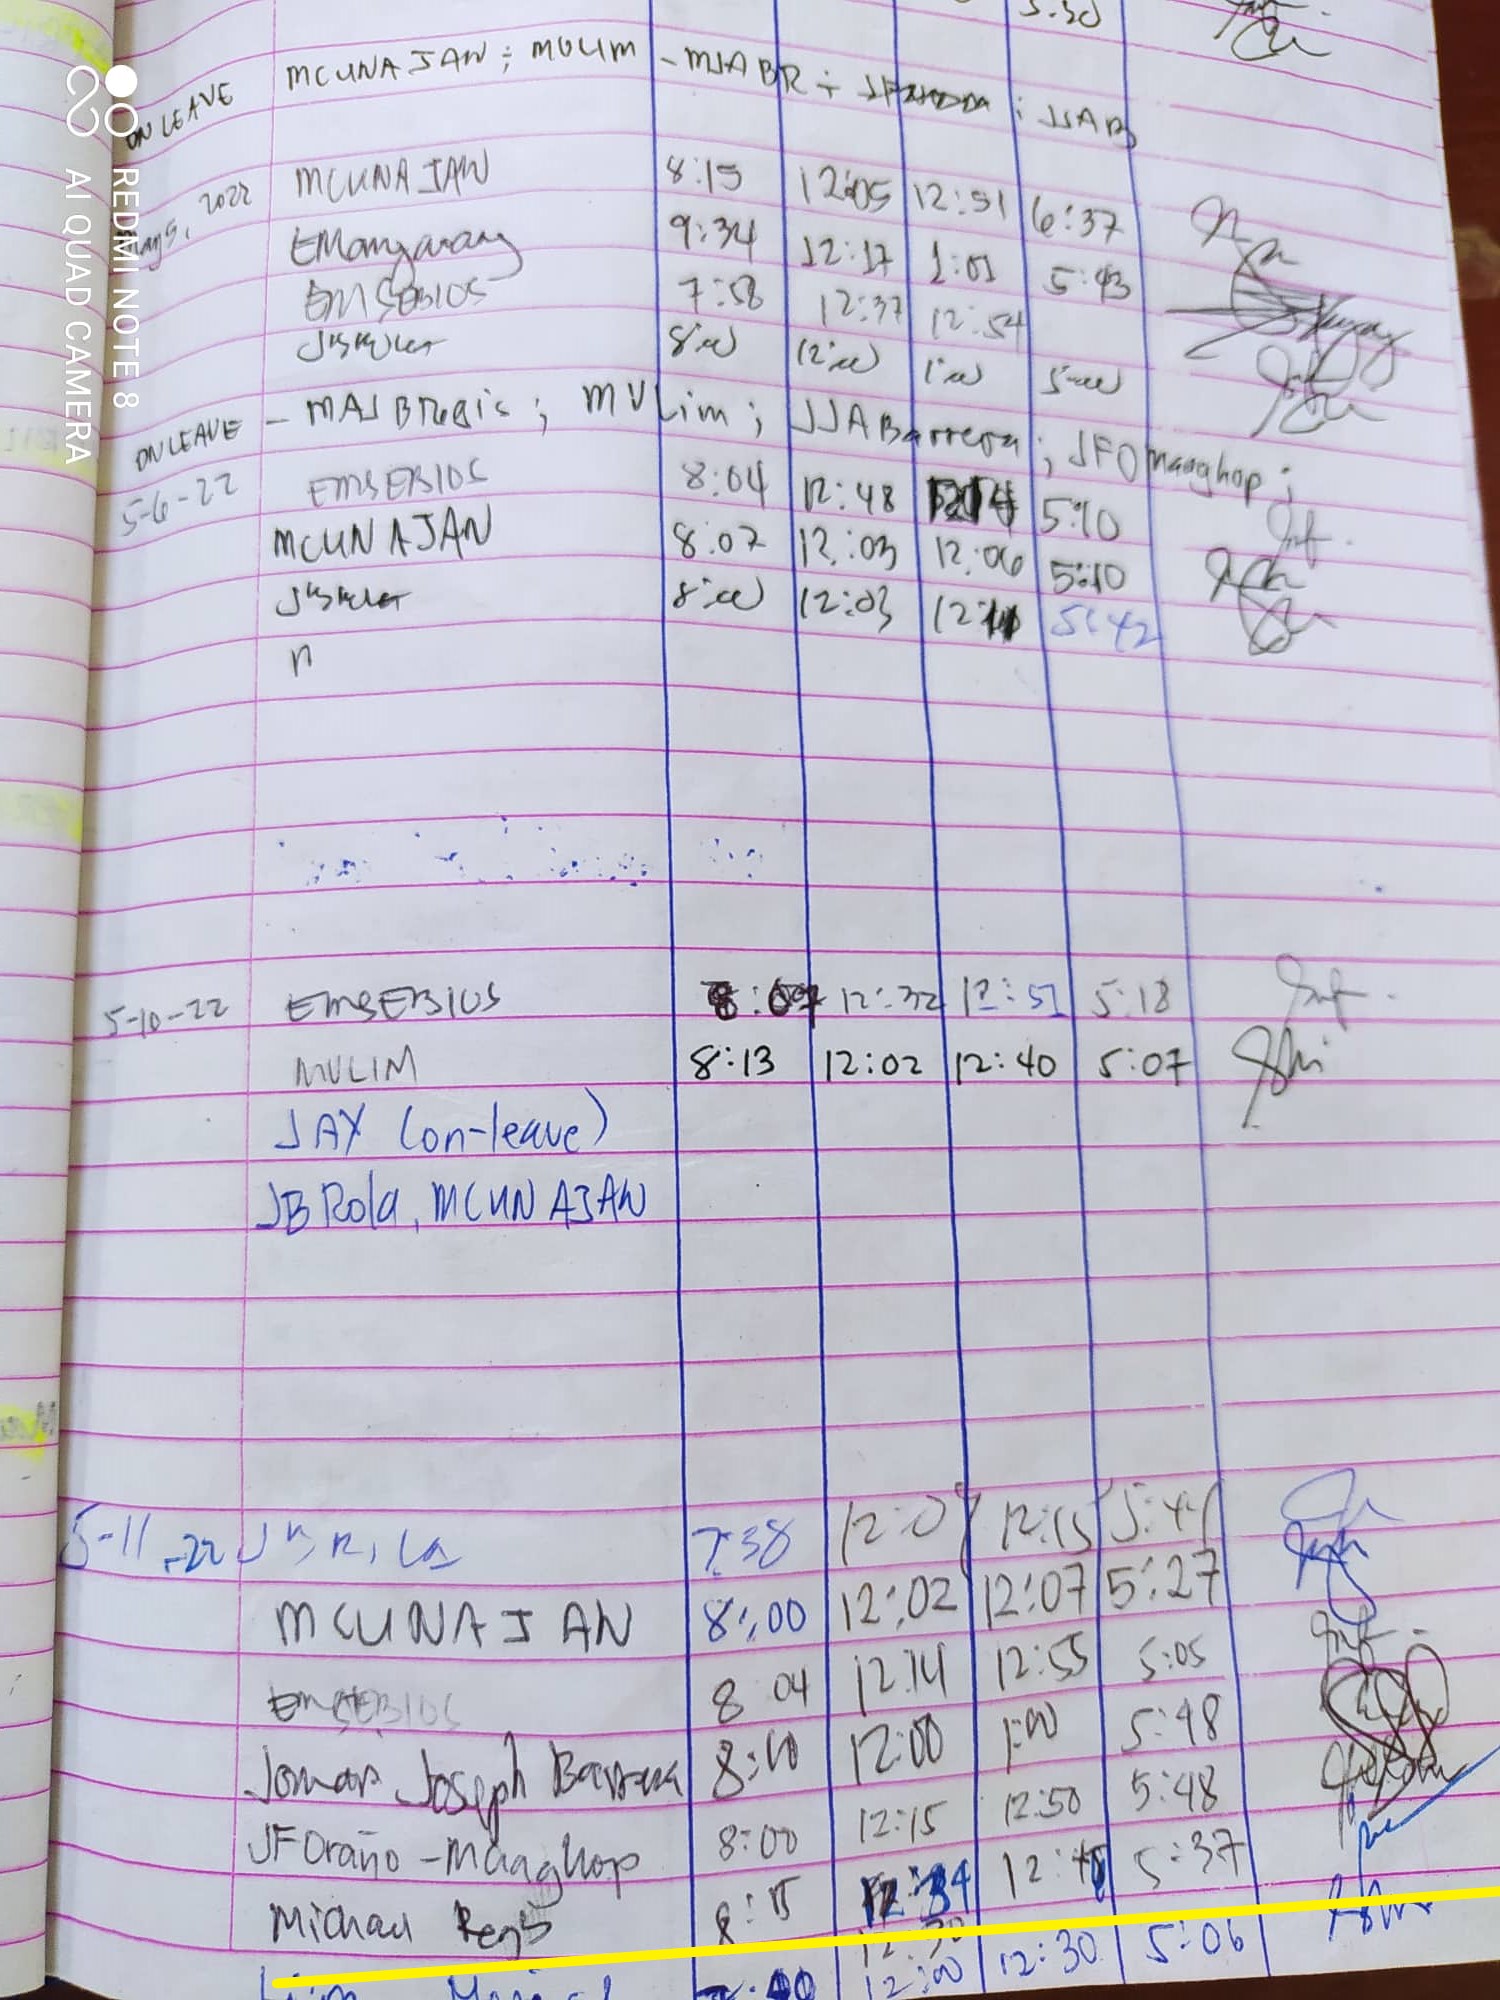 5:30
ON LEAVE MCUNAJAN; MVLIM - MJABR; JJAB
May 5, 2022 MCUNAJAN 8:15 12:05 12:51 6:37
EMangarang 9:34 12:17 1:01 5:43
EMSEBIOS 7:58 12:37 12:54
8:00 12:00 1:00 5:00
ON LEAVE - MAJBRegis; MVLim; JJABarrera; JFOmaaghop;
5-6-22 EMSEBIOS 8:04 12:48 5:10
MCUNAJAN 8:07 12:03 12:06 5:10
8:00 12:03 5:42
n
5-10-22 EMSEBIOS 12:32 12:51 5:18
MVLIM 8:13 12:02 12:40 5:07
JAY (on-leave)
JBRola, MCUNAJAN
5-11-22 JBRola 7:38 12:15
MCUNAJAN 8:00 12:02 12:07 5:27
EMSEBIOS 8:04 12:14 12:55 5:05
Joseph Barrera 8:00 12:00 1:00 5:48
JFOraño-Maaghop 8:00 12:15 12:50 5:48
Michael Regis 8:15 5:37
Lim 12:00 12:30 5:06
REDMI NOTE 8
AI QUAD CAMERA